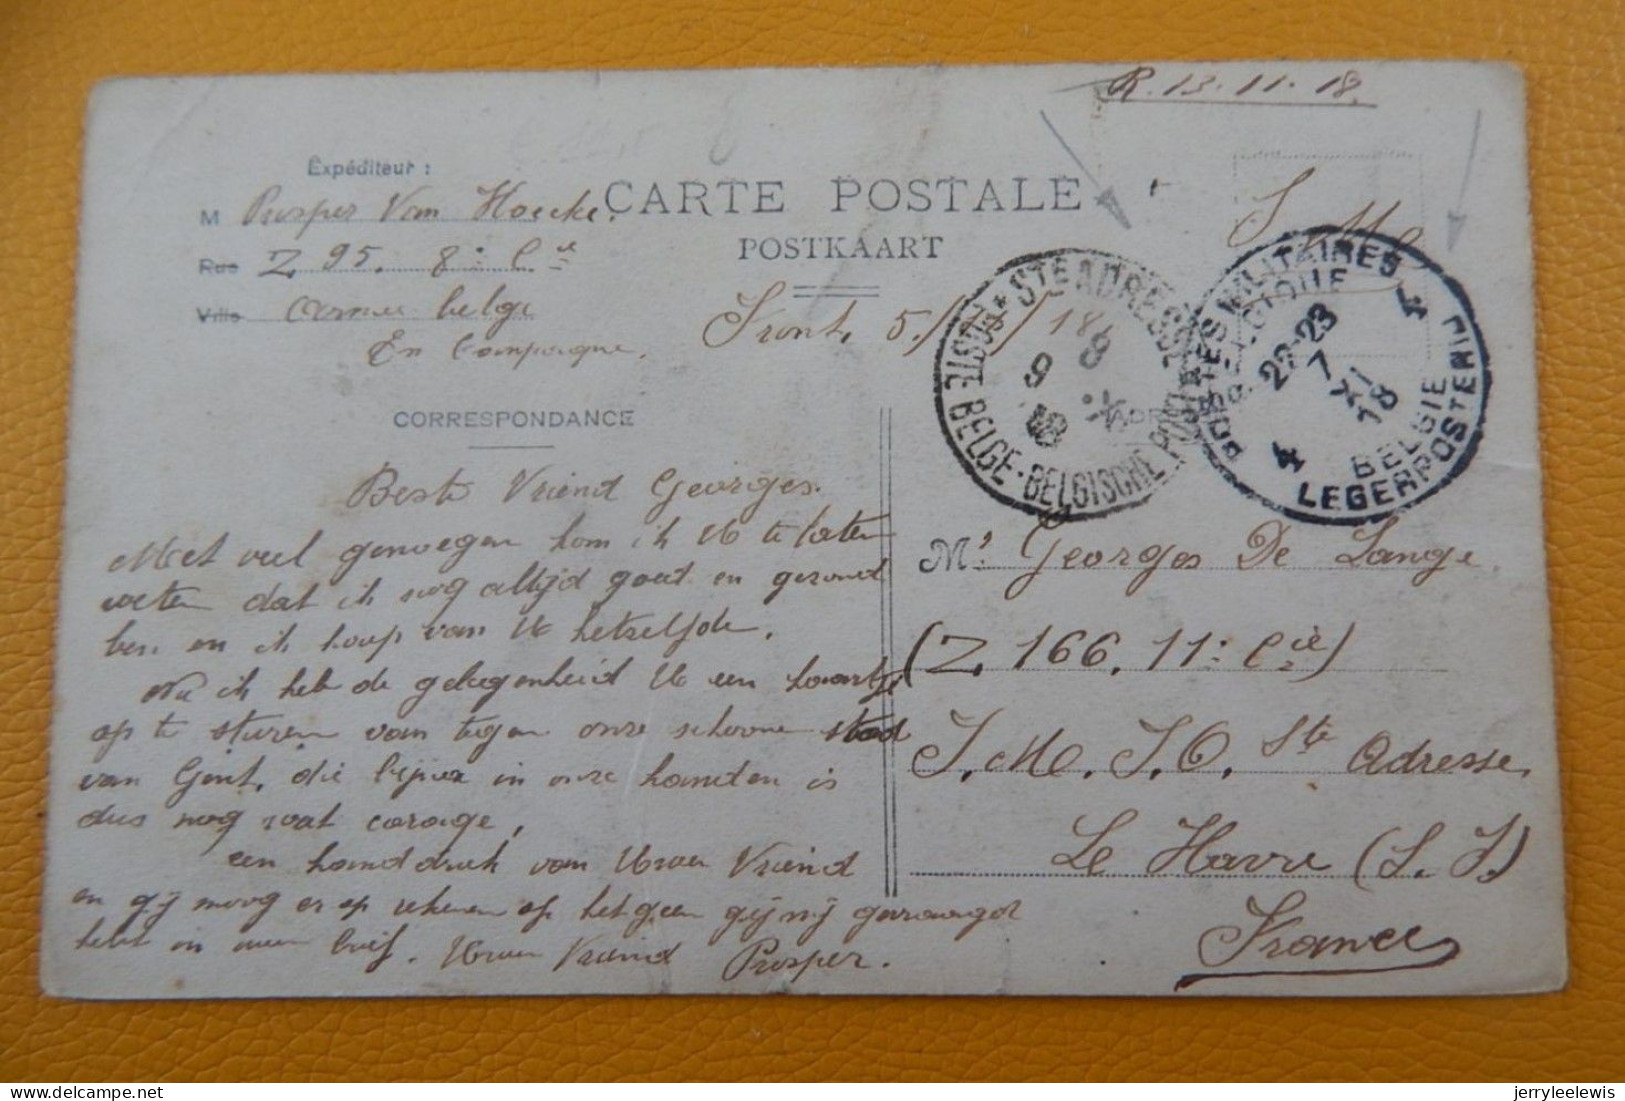 R. 13.11.18.
Expéditeur :
M Prosper Van Hoecke.
Rue Z 95. 8e Cie
Ville armée belge
En Campagne.
CARTE POSTALE
POSTKAART
S.M.
Front, 5/11/18
POSTE BELGE - BELGISCHE POST * STE ADRESSE
9 8
18
POSTES MILITAIRES
BELGIQUE
4
22-23
7 XI
18
4
BELGIE
LEGERPOSTERIJ
CORRESPONDANCE
Beste Vriend Georges.
Met veel genoegen kom ik U te laten
weten dat ik nog altijd goet en gezond
ben en ik hoop van U hetzelfde.
Nu ik heb de gelegenheid U een kaartje
op te sturen van tegen onze schoone stad
van Gent, die bijna in onze handen is
dus nog wat corage,
een handdruk van Uwen Vriend
en gij moog er op rekenen op hetgeen gij mij gevraagd
hebt in uwen brief. Uwen Vriend Prosper.
Mr. Georges De Lange.
(Z. 166. 11e Cie)
I.M.I.O. Ste Adresse,
Le Havre (S.I.)
France
jerryleelewis